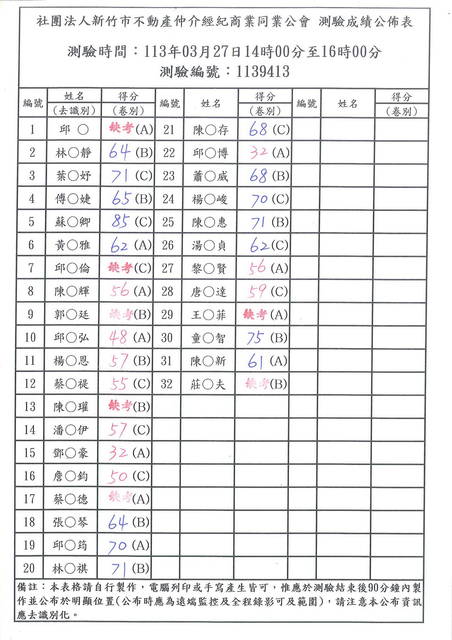 社團法人新竹市不動產仲介經紀商業同業公會 測驗成績公佈表
測驗時間：113年03月27日14時00分至16時00分
測驗編號：1139413
編號 姓名(去識別) 得分(卷別) 編號 姓名 得分(卷別) 編號 姓名 得分(卷別)
1 邱○ 缺考(A) 21 陳○存 68(C)
2 林○靜 64(B) 22 邱○博 32(A)
3 葉○妤 71(C) 23 蕭○威 68(B)
4 傅○婕 65(B) 24 楊○峻 70(C)
5 蘇○卿 85(C) 25 陳○惠 71(B)
6 黃○雅 62(A) 26 湯○貞 62(C)
7 邱○倫 缺考(C) 27 黎○賢 56(A)
8 陳○輝 56(A) 28 唐○達 59(C)
9 郭○廷 缺考(B) 29 王○菲 缺考(A)
10 邱○弘 48(A) 30 童○智 75(B)
11 楊○恩 57(B) 31 陳○新 61(A)
12 蔡○禔 55(C) 32 莊○夫 缺考(B)
13 陳○瓘 缺考(B)
14 潘○伊 57(C)
15 鄧○豪 32(A)
16 詹○鈞 50(C)
17 蔡○德 缺考(A)
18 張○琴 64(B)
19 邱○筠 70(A)
20 林○祺 71(B)
備註：本表格請自行製作，電腦列印或手寫產生皆可，惟應於測驗結束後90分鐘內製
作並公布於明顯位置(公布時應為遠端監控及全程錄影可及範圍)，請注意本公布資訊
應去識別化。